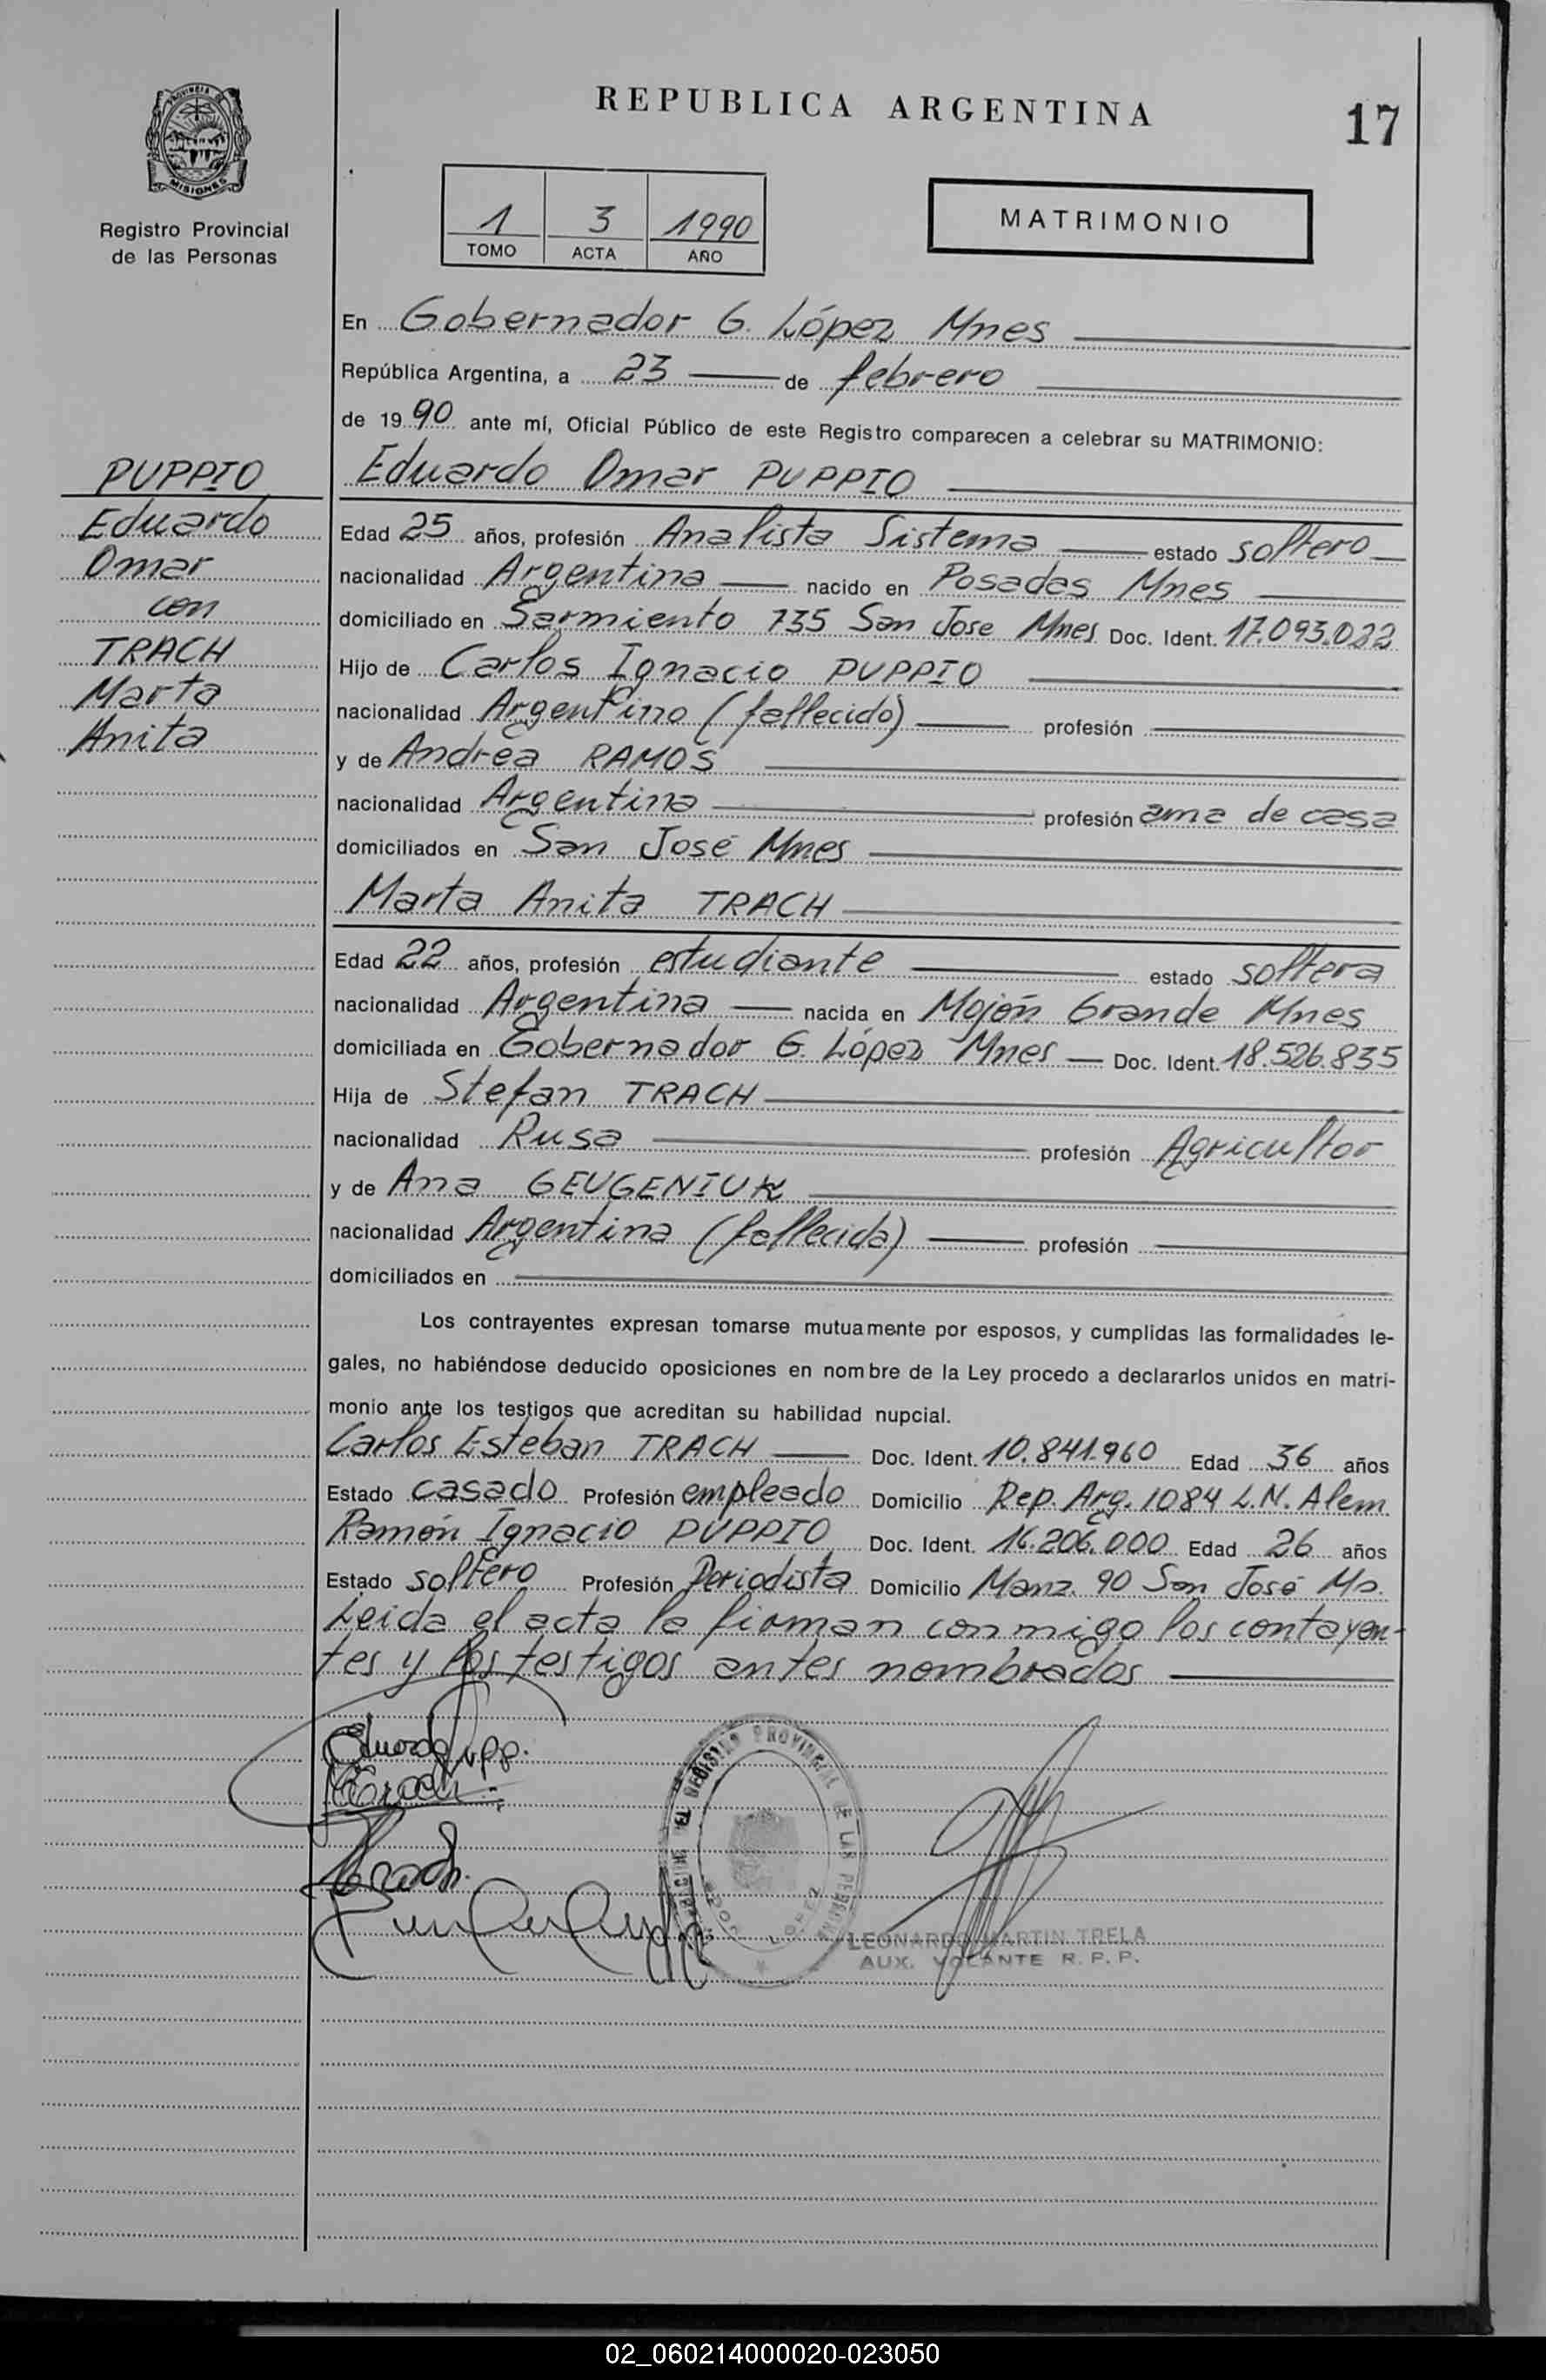 REPUBLICA ARGENTINA
17
PROVINCIA DE
MISIONES
Registro Provincial
de las Personas
1 3 1990
TOMO ACTA AÑO
MATRIMONIO
En Gobernador G. López Mnes
República Argentina, a 23 de febrero
de 1990 ante mí, Oficial Público de este Registro comparecen a celebrar su MATRIMONIO:
PUPPIO
Eduardo
Omar
con
TRACH
Marta
Anita
Eduardo Omar PUPPIO
Edad 25 años, profesión Analista Sistema estado soltero
nacionalidad Argentina nacido en Posadas Mnes
domiciliado en Sarmiento 735 San Jose Mnes Doc. Ident. 17.093.022
Hijo de Carlos Ignacio PUPPIO
nacionalidad Argentino (fallecido) profesión
y de Andrea RAMOS
nacionalidad Argentina profesión ama de casa
domiciliados en San José Mnes
Marta Anita TRACH
Edad 22 años, profesión estudiante estado soltera
nacionalidad Argentina nacida en Mojón Grande Mnes
domiciliada en Gobernador G. López Mnes Doc. Ident. 18.526.835
Hija de Stefan TRACH
nacionalidad Rusa profesión Agricultor
y de Ana GEUGENIUK
nacionalidad Argentina (fallecida) profesión
domiciliados en
Los contrayentes expresan tomarse mutuamente por esposos, y cumplidas las formalidades le-
gales, no habiéndose deducido oposiciones en nombre de la Ley procedo a declararlos unidos en matri-
monio ante los testigos que acreditan su habilidad nupcial.
Carlos Esteban TRACH Doc. Ident. 10.841.960 Edad 36 años
Estado casado Profesión empleado Domicilio Rep. Arg. 1084 L.N. Alem
Ramón Ignacio PUPPIO Doc. Ident. 16.206.000 Edad 26 años
Estado soltero Profesión Periodista Domicilio Manz. 90 San José Ms.
Leida el acta la firman conmigo los contayen-
tes y los testigos antes nombrados
REGISTRO PROVINCIAL DE LAS PERSONAS
LOPEZ
LEONARDO MARTIN TRELA
AUX. VOLANTE R. P. P.
02_060214000020-023050